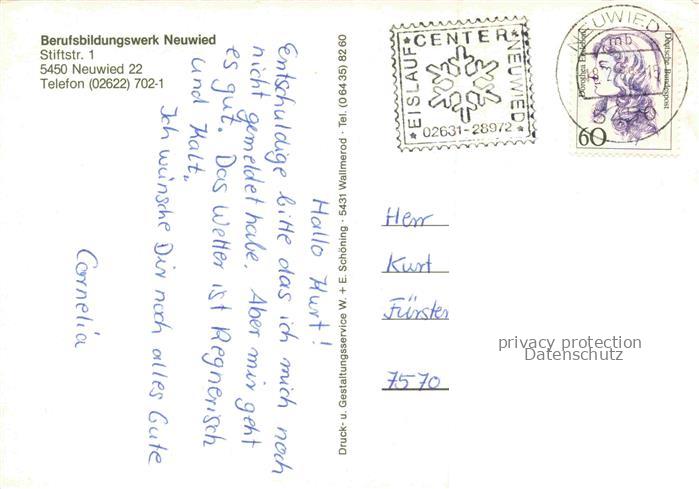 Berufsbildungswerk Neuwied
Stiftstr. 1
5450 Neuwied 22
Telefon (02622) 702-1
Hallo Kurt!
Entschuldige bitte das ich mich noch
nicht gemeldet habe. Aber mir geht
es gut. Das Wetter ist Regnerisch
und Kalt.
Ich wünsche Dir noch alles Gute
Cornelia
Druck- u. Gestaltungsservice W. + E. Schöning · 5431 Wallmerod · Tel. (0 64 35) 82 60
EISLAUF CENTER NEUWIED
02631-28972
NEUWIED
Deutsche Bundespost
60
Herr
Kurt
Fürster
7570
privacy protection
Datenschutz